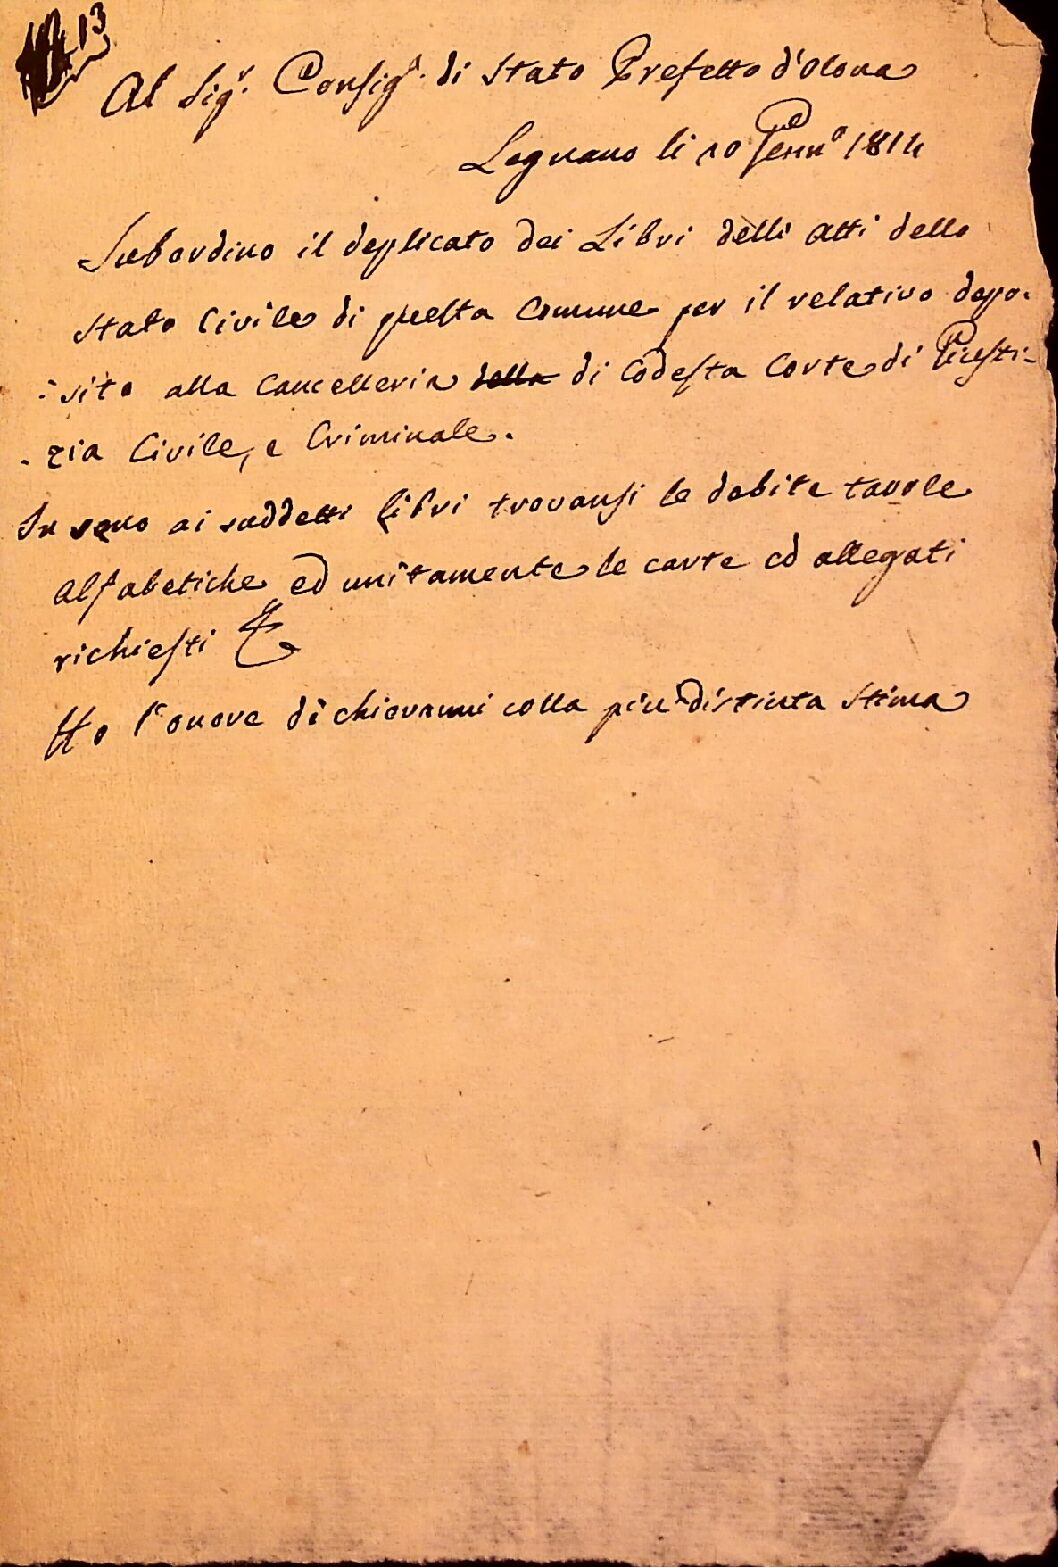 13
Al Sig.r Consig.r di Stato Prefetto d'Olona
Legnano li 10 Genn.o 1814
Subordino il duplicato dei Libri delli Atti dello
Stato Civile di questa Comune per il relativo depo-
sito alla Cancelleria della di Codesta Corte di Giusti-
-zia Civile, e Criminale.
In seno ai suddetti libri trovansi le debite tavole
Alfabetiche ed unitamente le carte ed allegati
richiesti
Ho l'onore di chiovanni colla più distinta Stima